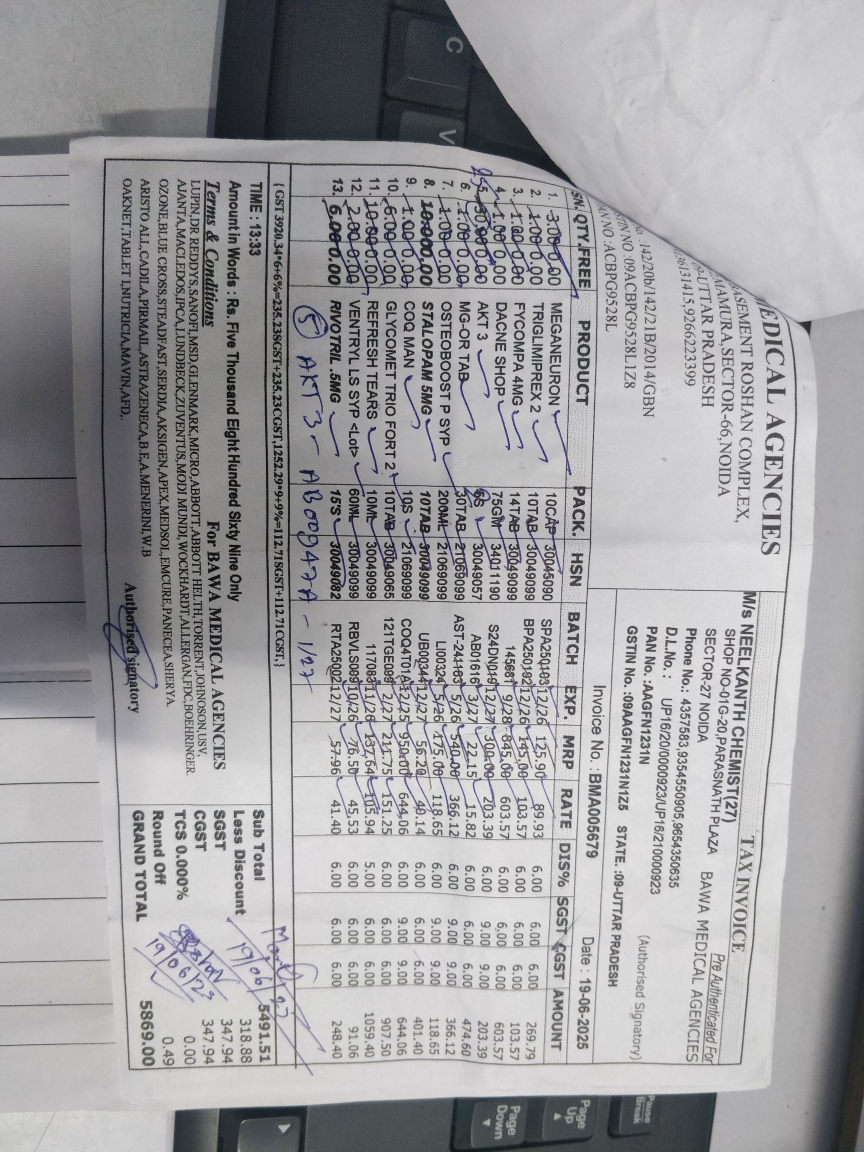 MEDICAL AGENCIES
BASEMENT ROSHAN COMPLEX,
MAMURA,SECTOR-66,NOIDA
UTTAR PRADESH
36131415,9266223399
142/20b/142/21B/2014/GBN
GSTIN NO :09ACBPG9528L1Z8
PAN NO :ACBPG9528L
TAX INVOICE
M/s NEELKANTH CHEMIST(27)
SHOP NO-01G-20,PARASNATH PLAZA
SECTOR-27 NOIDA
Phone No.: 4357583,9354550905,9654350635
D.L.No.: UP16/20/0000923/UP16/210000923
PAN No. :AAGFN1231N
GSTIN No. :09AAGFN1231N1Z5 STATE. :09-UTTAR PRADESH
Pre Authenticated For
BAWA MEDICAL AGENCIES
(Authorised Signatory)
Invoice No. : BMA005679 Date : 19-06-2025
SN. QTY.FREE PRODUCT PACK. HSN BATCH EXP. MRP RATE DIS% SGST CGST AMOUNT
1. 3.00 0.00 MEGANEURON 10CAP 30045090 SPA250103 12/26 125.90 89.93 6.00 6.00 6.00 269.79
2. 1.00 0.00 TRIGLIMIPREX 2 10TAB 30049099 BPA250192 12/26 145.00 103.57 6.00 6.00 6.00 103.57
3. 1.00 0.00 FYCOMPA 4MG 14TAB 30049099 145681 9/28 845.00 603.57 6.00 6.00 6.00 603.57
4. 1.00 0.00 DACNE SHOP 75GM 34011190 S24DN019 12/27 300.00 203.39 6.00 9.00 9.00 203.39
5. 30.00 0.00 AKT 3 6S 30049057 AB01616 3/27 22.15 15.82 6.00 6.00 6.00 474.60
6. 1.00 0.00 MG-OR TAB 30TAB 21069099 AST-241163 5/26 540.00 366.12 6.00 9.00 9.00 366.12
7. 1.00 0.00 OSTEOBOOST P SYP 200ML 21069099 LI0324 5/26 175.00 118.65 6.00 9.00 9.00 118.65
8. 10.00 0.00 STALOPAM 5MG 10TAB 30049099 UB00344 12/27 56.20 40.14 6.00 6.00 6.00 401.40
9. 1.00 0.00 COQ MAN 10S 21069099 COQ4T01A 12/25 950.00 644.06 6.00 9.00 9.00 644.06
10. 6.00 0.00 GLYCOMET TRIO FORT 2 10TAB 30049065 121TGE009 2/27 211.75 151.25 6.00 6.00 6.00 907.50
11. 10.00 0.00 REFRESH TEARS 10ML 30049099 117083 11/26 137.64 105.94 5.00 6.00 6.00 1059.40
12. 2.00 0.00 VENTRYL LS SYP <Lot> 60ML 30049099 RBVLS009 10/26 76.50 45.53 6.00 6.00 6.00 91.06
13. 6.00 0.00 RIVOTRIL .5MG 15'S 30049082 RTA25002 12/27 57.96 41.40 6.00 6.00 6.00 248.40
5 AKT 3 - AB00947A - 1/27
[ GST 3920.34*6+6%=235.23SGST+235.23CGST,1252.29*9+9%=112.71SGST+112.71CGST,]
TIME : 13:33
Amount in Words : Rs. Five Thousand Eight Hundred Sixty Nine Only
For BAWA MEDICAL AGENCIES
Terms & Conditions
LUPIN,DR REDDYS,SANOFI,MSD,GLENMARK,MICRO,ABBOTT,ABBOTT HELTH,TORRENT,JOHNOSON,USV,
AJANTA,MACLEDOS,IPCA,LUNDBECK,ZUVENTUS,MODI MUNDI,WOCKHARDT,ALLERGAN,FDC,BOEHRINGER
OZONE,BLUE CROSS,STEADFAST,SERDIA,AKSIGEN,APEX,MEDSOL,EMCURE,PANECEA,SHERYA
ARISTO ALL,CADILA,PIRMAIL,ASTRAZENECA,B.E,A.MENERINI,W.B
OAKNET,TABLET I,NUTRICIA,MAVIN,AFD,.
Authorised signatory
Sub Total 5491.51
Less Discount 318.88
SGST 347.94
CGST 347.94
TCS 0.000% 0.00
Round Off 0.49
GRAND TOTAL 5869.00
19/06
19/06/25
C
V
Pause
Break
Page
Up
Page
Down